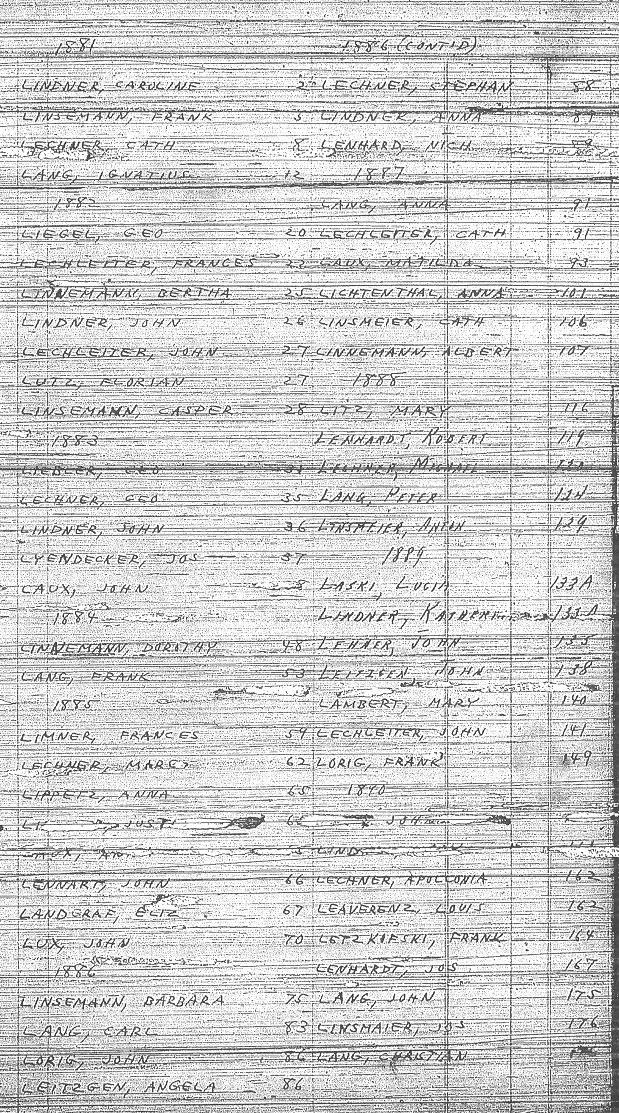 1881
LINDNER, CAROLINE 2
LINSEMANN, FRANK 5
LECHNER, CATH 8
LANG, IGNATIUS 12
1882
LIEGEL, GEO 20
LECHLEITER, FRANCES 22
LINNEMANN, BERTHA 25
LINDNER, JOHN 26
LECHLEITER, JOHN 27
LUTZ, FLORIAN 27
LINSEMANN, CASPER 28
1883
LIEBLER, GEO
LECHNER, GEO 35
LINDNER, JOHN 36
LYENDECKER, JOS 37
CAUX, JOHN
1884
LINNEMANN, DOROTHY 48
LANG, FRANK 53
1885
LIMNER, FRANCES 59
LECHNER, MARGT 62
LIPPETZ, ANNA 65
LENNART, JOHN 66
LANDGRAF, ELIZ 67
LUX, JOHN 70
1886
LINSEMANN, BARBARA 75
LANG, CARL 83
LORIG, JOHN 86
LEITZGEN, ANGELA 86
1886 (CONT'D)
LECHNER, STEPHAN 88
LINDNER, ANNA 89
LENHARD, NICH 89
1887
LANG, ANNA 91
LECHLEITER, CATH 91
CAUX, MATILDA 93
LICHTENTHAL, ANNA 101
LINSMEIER, CATH 106
LINNEMANN, ALBERT 107
1888
LITZ, MARY 116
LENHARDT, ROBERT 119
LECHNER, MICHAEL
LANG, PETER 124
LINSMEIER, ANTON 129
1889
LASKI, LUCIA 133A
LINDNER, 133A
LEHNER, JOHN 135
LEITZGEN, JOHN 138
LAMBERT, MARY 140
LECHLEITER, JOHN 141
LORIG, FRANK 149
1890
JOHN
LECHNER, APOLLONIA 162
LEAVERENZ, LOUIS 162
LETZKOFSKI, FRANK 164
LENHARDT, JOS 167
LANG, JOHN 175
LINSMAIER, JOS 176
LANG, CHRISTIAN